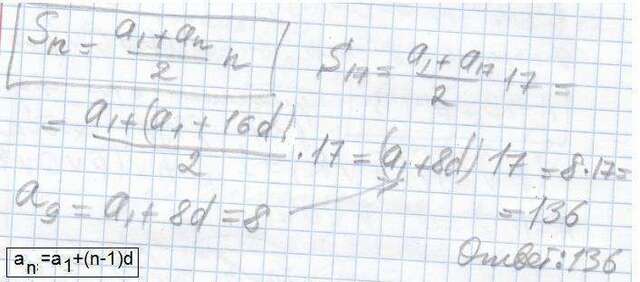 Sn = (a₁ + aₙ)/2 n
S₁₇ = (a₁ + a₁₇)/2 · 17 =
= (a₁ + (a₁ + 16d))/2 · 17 = (a₁ + 8d) 17 = 8 · 17 =
a₉ = a₁ + 8d = 8
= 136
aₙ=a₁+(n-1)d
Ответ: 136